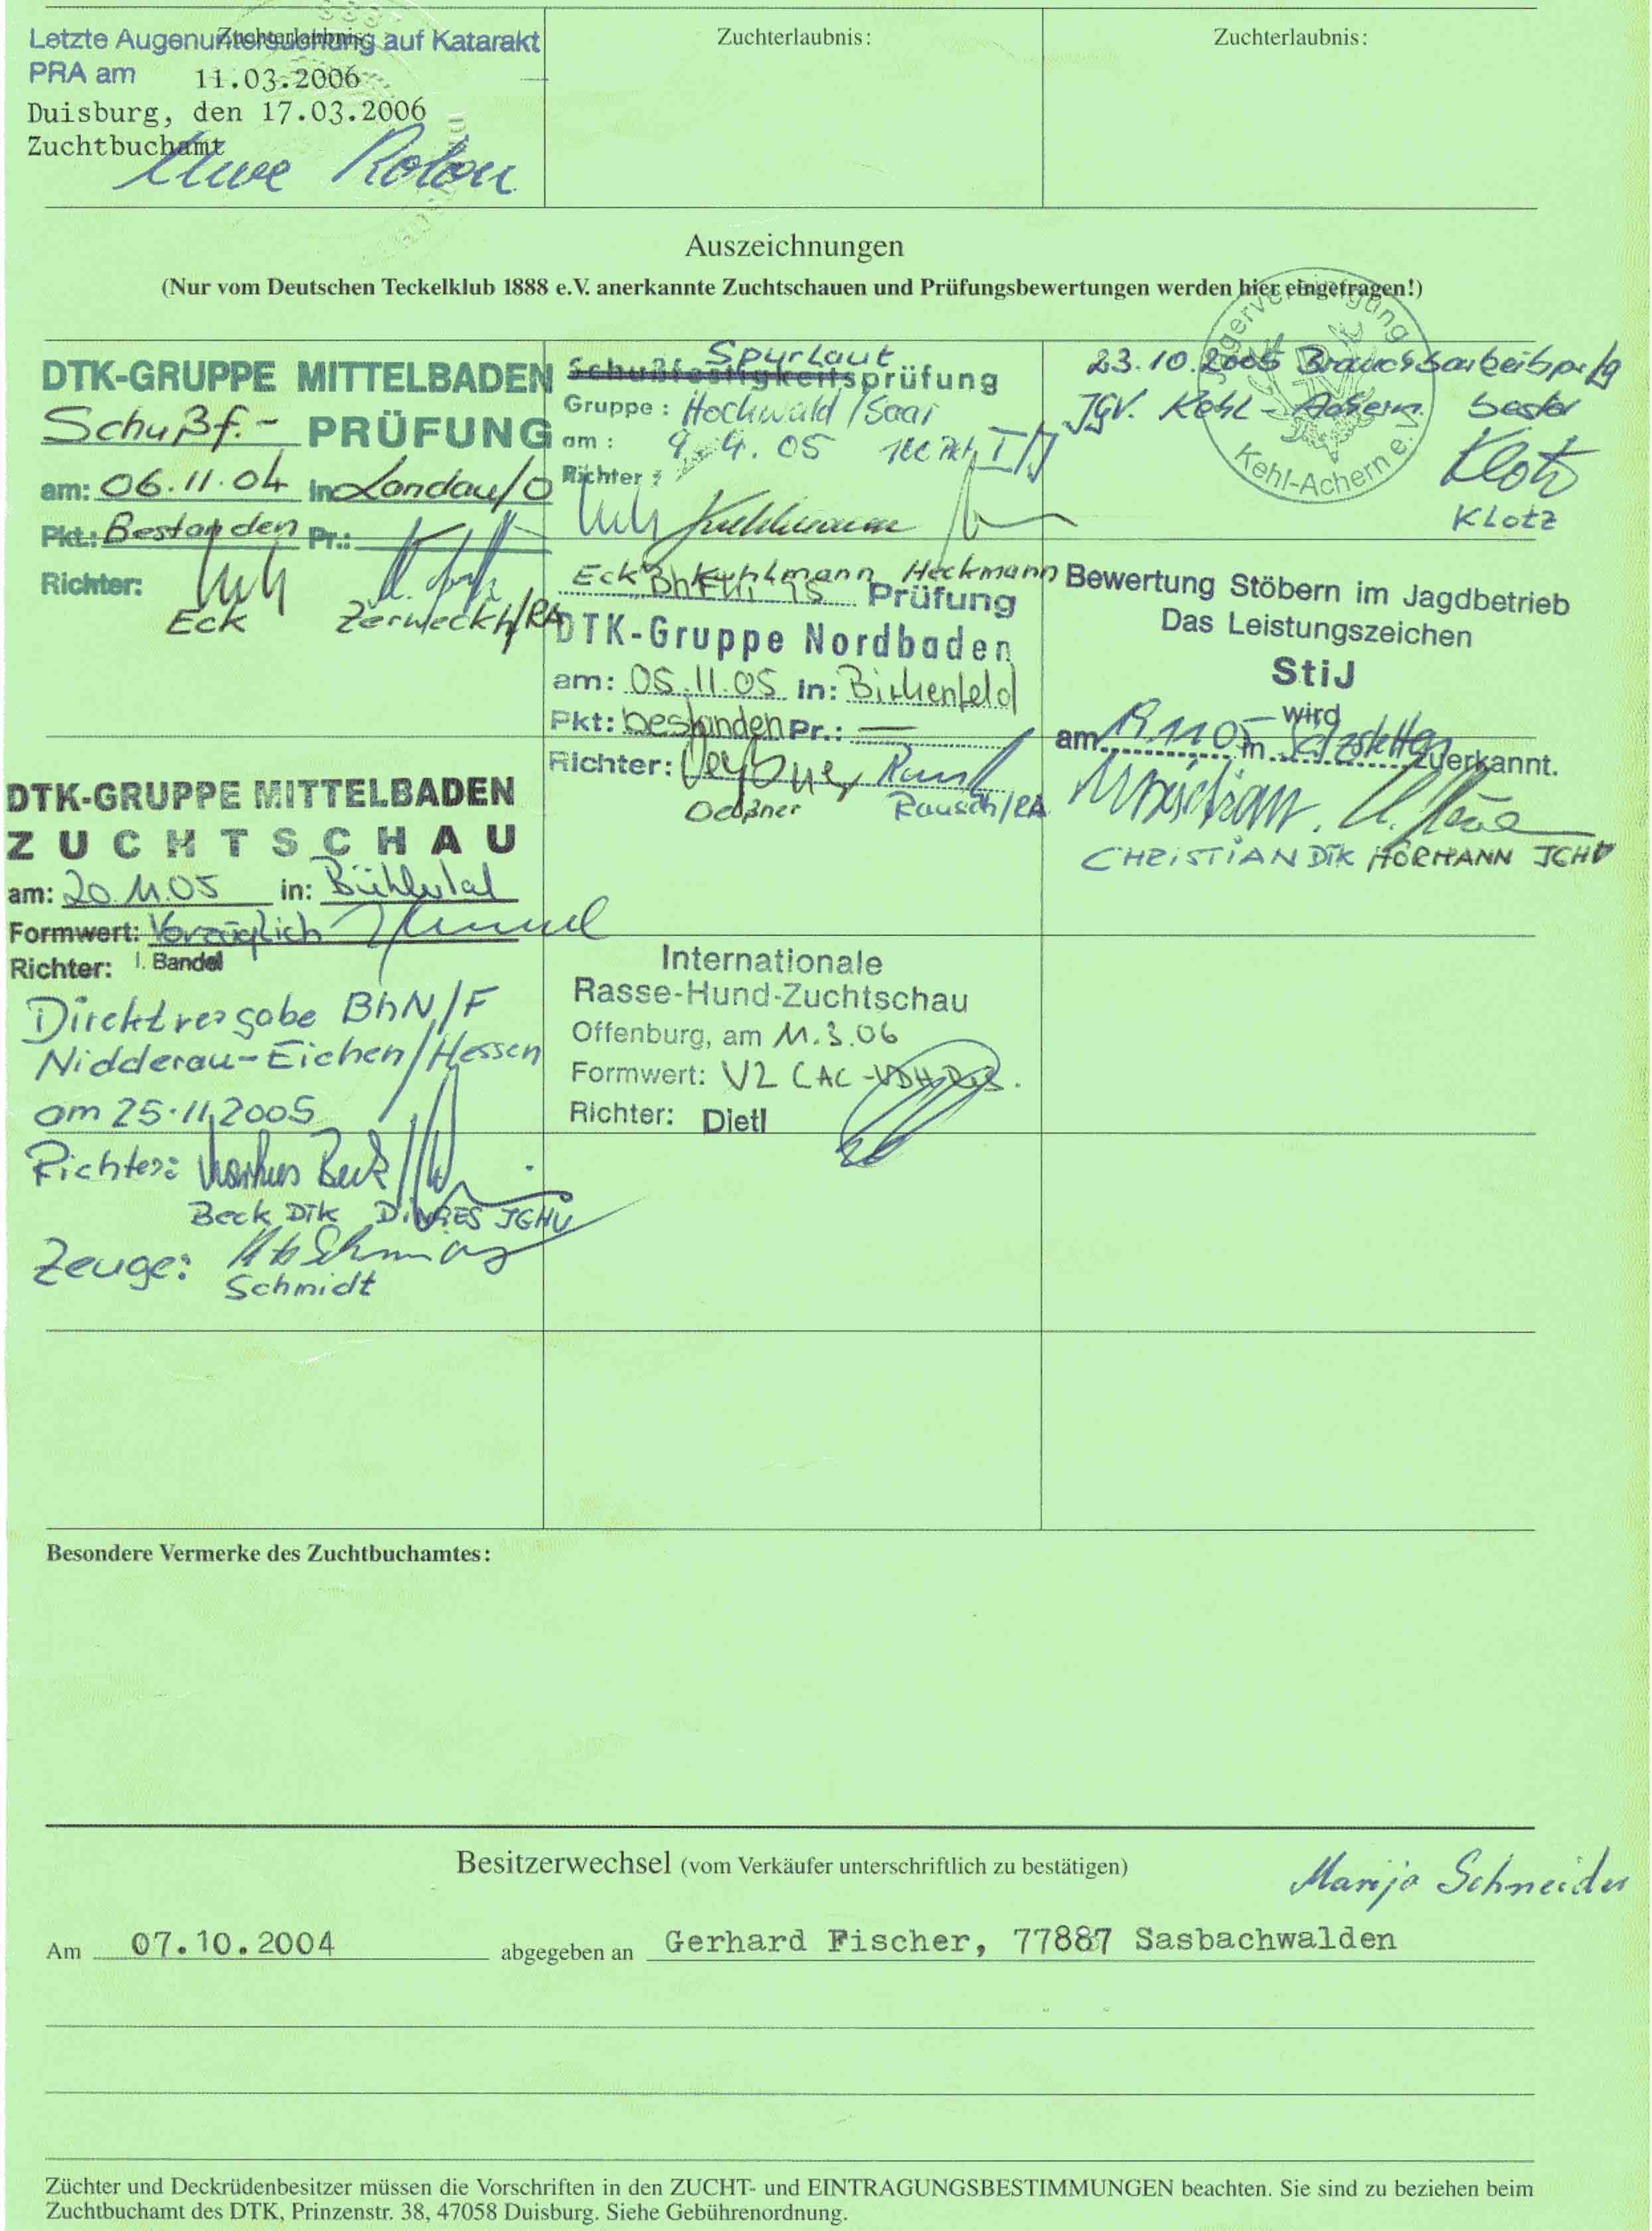 Letzte Augenuntersuchung auf Katarakt
Zuchterlaubnis:
PRA am 11.03.2006
Duisburg, den 17.03.2006
Zuchtbuchamt
Uwe
Zuchterlaubnis:
Zuchterlaubnis:
Auszeichnungen
(Nur vom Deutschen Teckelklub 1888 e.V. anerkannte Zuchtschauen und Prüfungsbewertungen werden hier eingetragen!)
DTK-GRUPPE MITTELBADEN
Schußf.- PRÜFUNG
am: 06.11.04 in Landau/O
Pkt.: Bestanden Pr.:
Richter:
Eck Zerweckh/RA
Spurlaut
Schußfestigkeitsprüfung
Gruppe: Hochwald/Saar
am: 9.4.05 100 Pkt, I/
Richter:
Eck Kuhlmann Heckmann
23.10.2005 Brauchbarkeitsprfg
JGV. Kehl-Achern. bester
Jägervereinigung
Kehl-Achern e.V.
Klotz
Klotz
BhFK 95 Prüfung
DTK-Gruppe Nordbaden
am: 05.11.05 in: Birkenfeld
Pkt: bestanden Pr.: —
Richter:
Oeßner Rausch/RA
Bewertung Stöbern im Jagdbetrieb
Das Leistungszeichen
StiJ
wird
am in zuerkannt.
CHRISTIAN DTK HÖRMANN JGHV
DTK-GRUPPE MITTELBADEN
ZUCHTSCHAU
am: 20.11.05 in: Bühlertal
Formwert: Vorzüglich
Richter: I. Bandel
Direktvergabe BhN/F
Nidderau-Eichen/Hessen
am 25.11.2005
Richter: Markus Beck
Beck DTK DINGES JGHV
Zeuge:
Schmidt
Internationale
Rasse-Hund-Zuchtschau
Offenburg, am 11.3.06
Formwert: V2 CAC-VDH Res.
Richter: Dietl
Besondere Vermerke des Zuchtbuchamtes:
Besitzerwechsel (vom Verkäufer unterschriftlich zu bestätigen)
Marija Schneider
Am 07.10.2004 abgegeben an Gerhard Fischer, 77887 Sasbachwalden
Züchter und Deckrüdenbesitzer müssen die Vorschriften in den ZUCHT- und EINTRAGUNGSBESTIMMUNGEN beachten. Sie sind zu beziehen beim
Zuchtbuchamt des DTK, Prinzenstr. 38, 47058 Duisburg. Siehe Gebührenordnung.